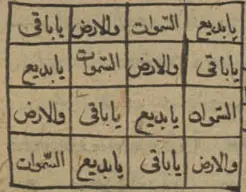 يابديع السموات والارض ياباقى
ياباقى والارض السموات يابديع
السموات يابديع ياباقى والارض
والارض ياباقى يابديع السموات